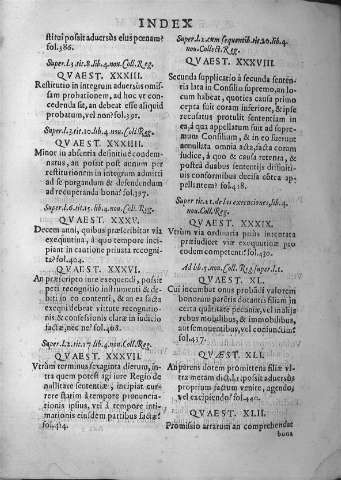 INDEX
stitui possit adversus eius poenam?
fol.386.
Super.l.2.tit.8.lib.4.nou.Coll.Reg.
QVAEST. XXXIII.
Restitutio in integrum aduersus omis
sam probationem, ad hoc vt con-
cedenda sit, an debeat esse aliquid
probatum, vel non? fol.391.
Super.l.3.tit.10.lib.4.nou.Coll.Reg.
QVAEST. XXXIIII.
Minor in absentis definitiuè condem-
natus, an possit post annum per
restitutionem in integrum admitti
ad se purgandum & defendendum
ad recuperanda bona? fol.397.
Super.l.6.tit.15.lib.4.nou.Coll.Reg.
QVAEST. XXXV.
Decem anni, quibus præscribitur via
exequutiua, à quo tempore inci-
piant in cautione priuata recogni-
ta? fol.404.
QVAEST. XXXVI.
An præscripto iure exequendi, possit
peti recognitio instrumenti & de-
biti in eo contenti, & an ea facta
exequi debeat virtute recognitio-
nis & confessionis claræ in iudicio
factæ, nec ne? fol.408.
Super.l.2.tit.17.lib.4.nou.Coll.Reg.
QVAEST. XXXVII.
Vtrum terminus sexaginta dierum, in-
tra quem potest agi iure Regio de
nullitate sententiæ, incipiat cur-
rere statim à tempore pronuncia-
tionis ipsius, vel à tempore inti-
mationis eiusdem partibus factæ?
fol.414.
Super.l.2.cum sequentib.tit.20.lib.4.
nou.Collect.Reg.
QVAEST. XXXVIII.
Secunda supplicatio à secunda senten-
tia lata in Consilio supremo, an lo-
cum habeat, quoties causa primo
cepta fuit coram inferiore, & ipse
recusatus protulit sententiam in
ea, à qua appellatum fuit ad supre-
mum Consilium, & in eo fuerunt
annullata omnia, acta, facta coram
iudice, à quo & causa retenta, &
postea duabus sententijs diffiniti-
uis conformibus decisa absque ap-
pellatem? fol.418.
Super tit.21.de las execuciones, lib.4.
nou.Coll.Reg.
QVAEST. XXXIX.
Vtrum via ordinaria prius intentata
præiudicet viæ exequutiuæ pro
eodem competenti? fol.430.
Ad lib.5.nou.Coll.Reg.super.l.1.
QVAEST. XL.
Cui incumbat onus probandi valorem
bonorum patris dotantis filiam in
certa quantitate pecuniæ, vel in alijs
rebus mobilibus, & immobilibus,
aut semouentibus, vel confunctim?
fol.437.
QVAEST. XLI.
An parens dotem promittens filiæ vl-
tra metam dict.l.1. possit aduersus
proprium factum venire, agendo,
vel excipiendo? fol.440.
QVAEST. XLII
Promissio arrarum an comprehendat
bona